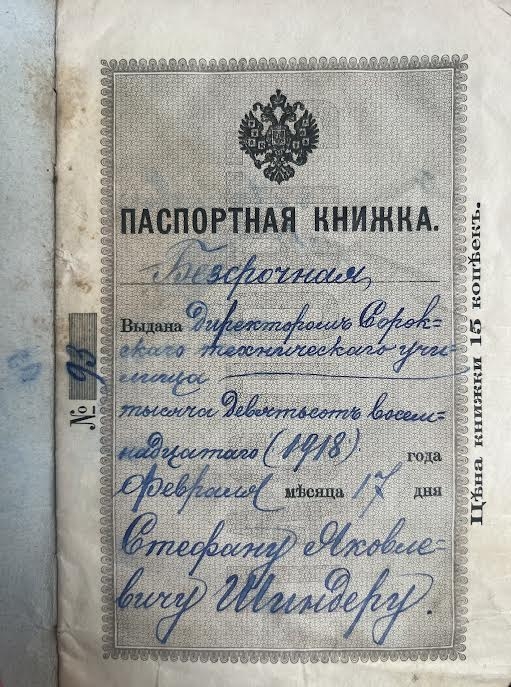 ПАСПОРТНАЯ КНИЖКА.
Безсрочная
Выдана Директоромъ Сорок=
скаго техническаго учи=
лища
тысяча Девятьсотъ восем=
надцатаго (1918) года
Февраля мѣсяца 17 дня
Стефану Яковле=
вичу Шиндеру.
№ 93
Цѣна книжки 15 копѣекъ.